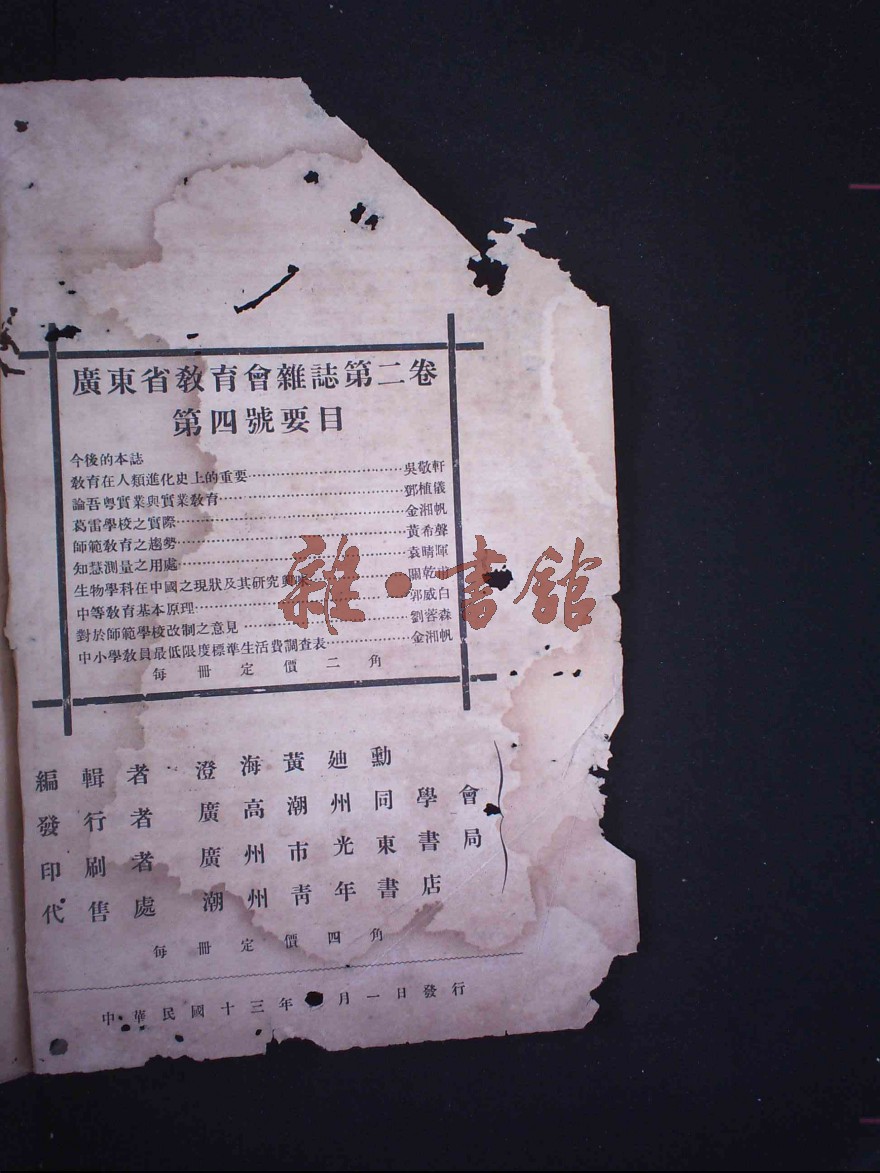 廣東省教育會雜誌第二卷
第四號要目
今後的本誌
教育在人類進化史上的重要……吳敬軒
論吾粵實業與實業教育……鄧植儀
葛雷學校之實際……金湘帆
師範教育之趨勢……黃希聲
知慧測量之用處……袁晴暉
生物學科在中國之現狀及其研究興味……關乾甫
中等教育基本原理……郭威白
對於師範學校改制之意見……劉蓉森
中小學教員最低限度標準生活費調查表……金湘帆
每冊定價二角
雜·書館
編輯者 澄海黃廸勳
發行者 廣高潮州同學會
印刷者 廣州市光東書局
代售處 潮州青年書店
每冊定價四角
中華民國十三年 月一日發行